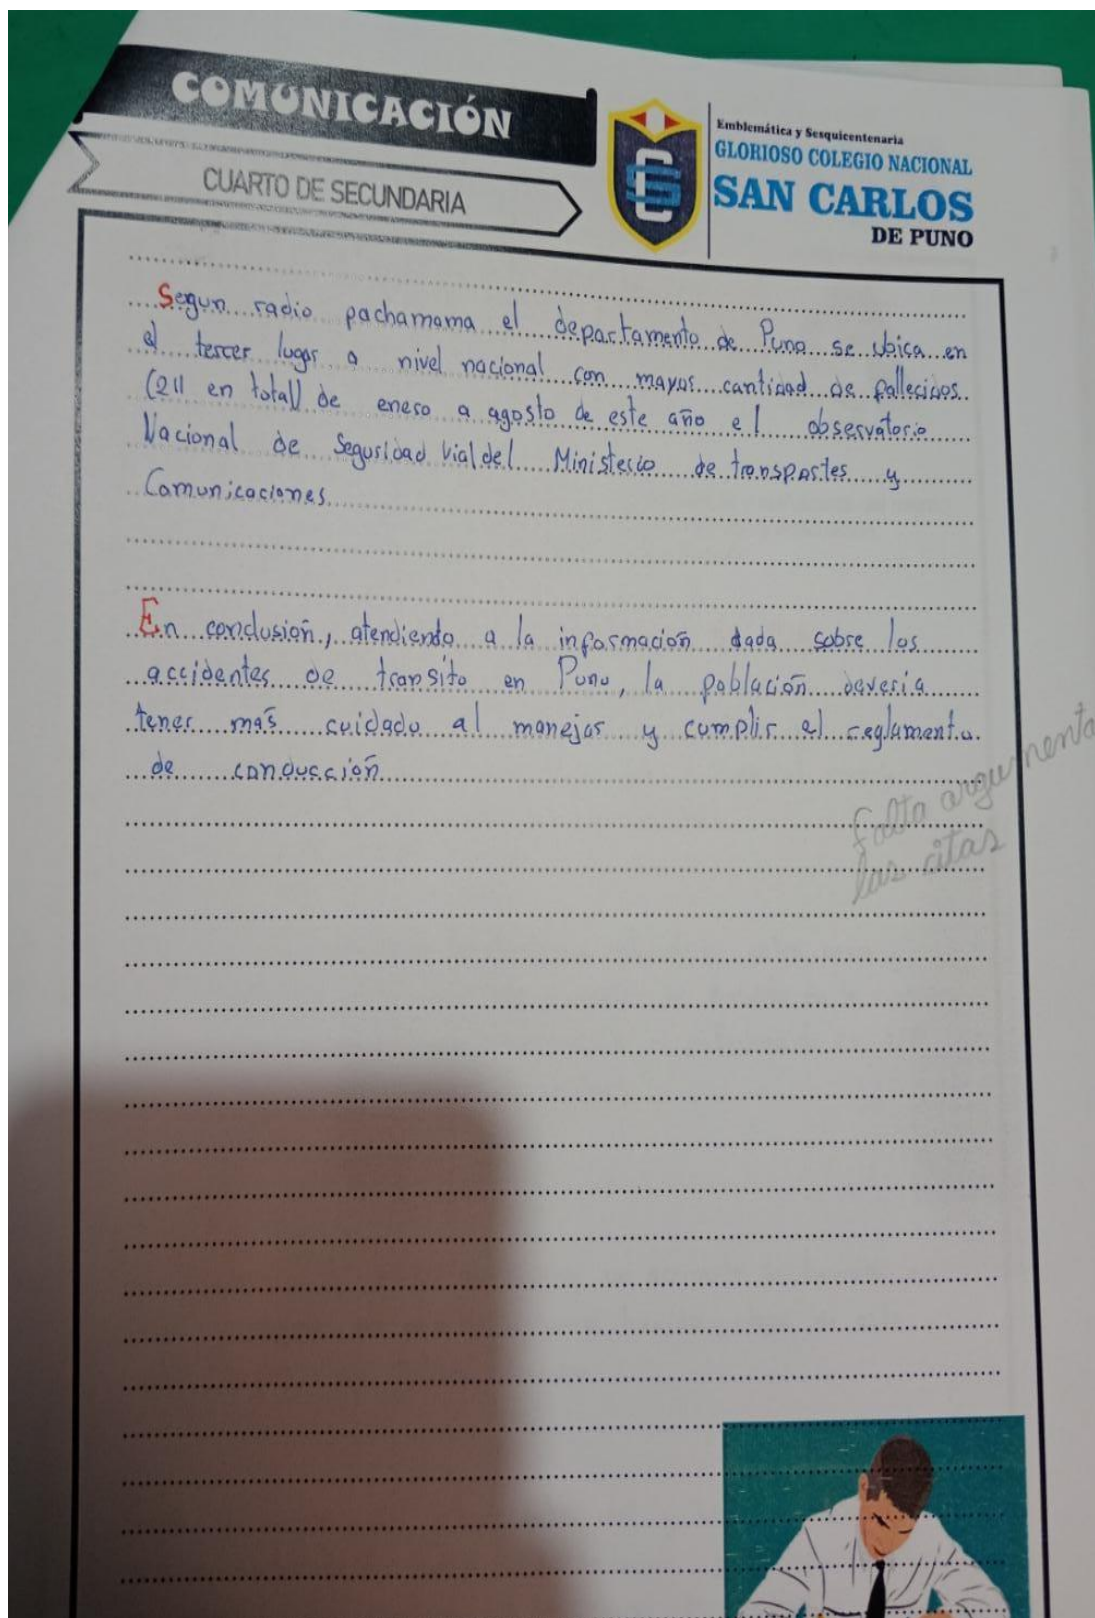 COMUNICACIÓN
CUARTO DE SECUNDARIA
Emblemática y Sesquicentenaria
GLORIOSO COLEGIO NACIONAL
SAN CARLOS
DE PUNO
Segun radio pachamama el departamento de Puno se ubica en
el tercer lugar a nivel nacional con mayor cantidad de fallecidos
(211 en total) de enero a agosto de este año el observatorio
Nacional de Seguridad Vial del Ministerio de transportes y
Comunicaciones
En conclusión, atendiendo a la información dada sobre los
accidentes de transito en Puno, la población deveria
tener más cuidado al manejar y cumplir el reglamento
de conducción
falta argumenta
las citas